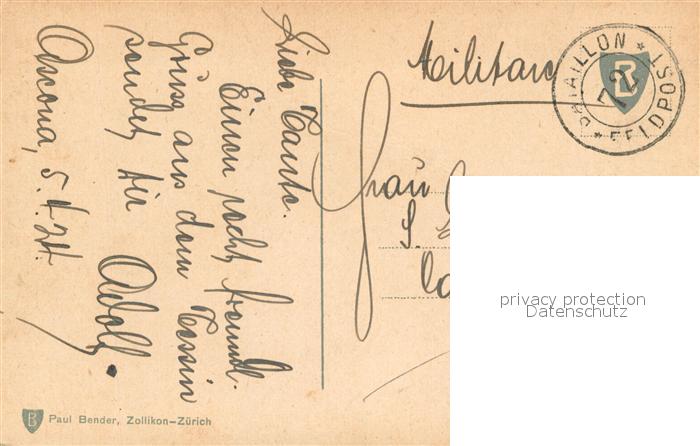 Liebe Tante.
Einen recht freundl.
Gruss aus dem Tessin
sendet Dir
Adolf.
Ascona, 5.
Militär
BATAILLON * FELDPOST *
72
B
Frau
S.
privacy protection
Datenschutz
B Paul Bender, Zollikon-Zürich